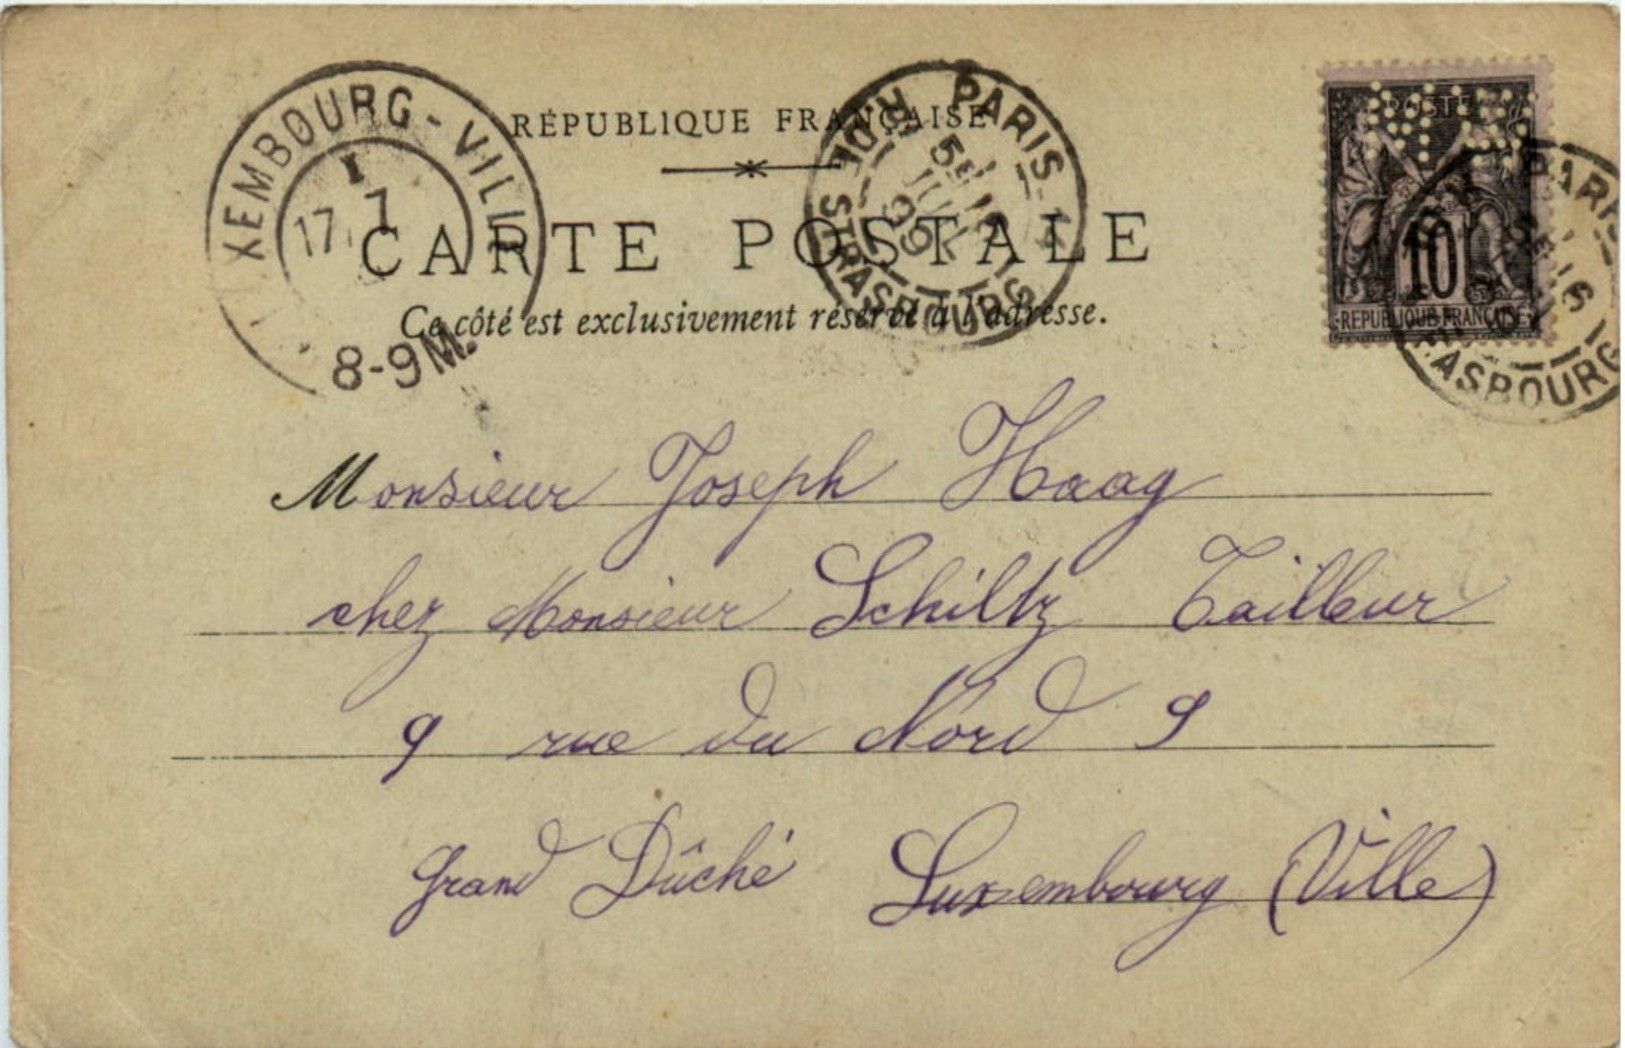 RÉPUBLIQUE FRANÇAISE
CARTE POSTALE
Ce côté est exclusivement réservé à l'adresse.
LUXEMBOURG-VILLE
17. 7
8-9M.
PARIS
R. DE STRASBOURG
JUIL
99
10
REPUBLIQUE FRANÇAISE
PARIS
ASBOURG
Monsieur Joseph Haag
chez Monsieur Schiltz Tailleur
9 rue du Nord 9
Grand Dûché Luxembourg (Ville)